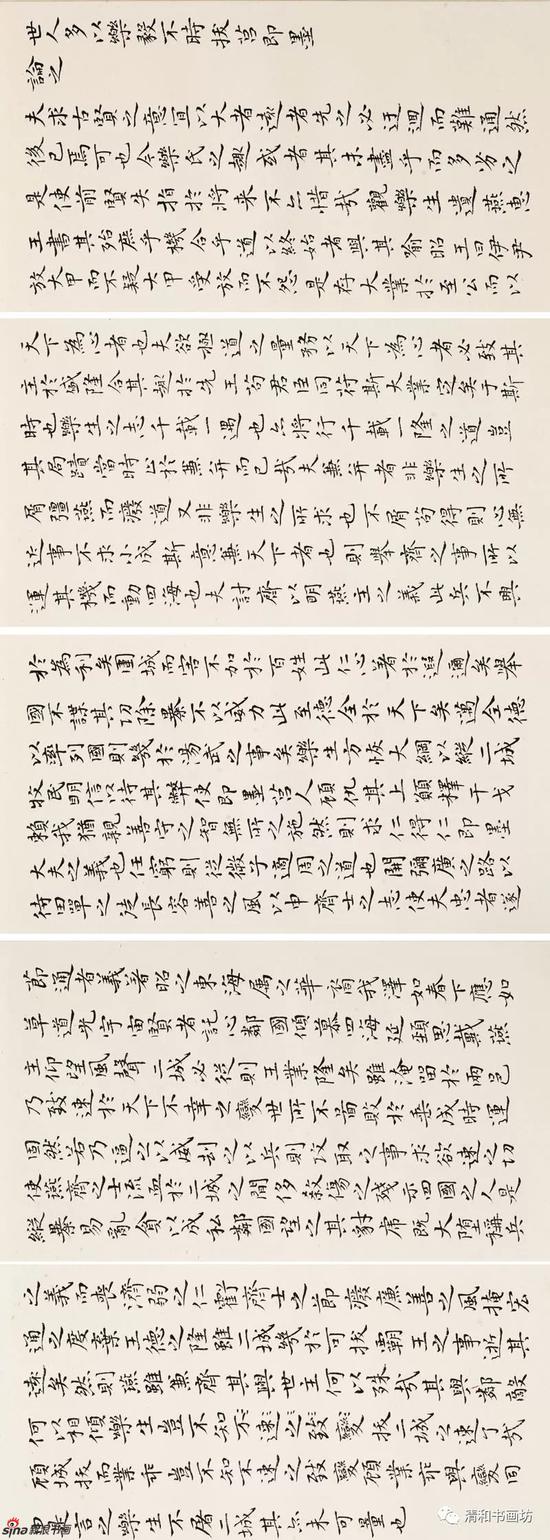 世人多以樂毅不時拔莒即墨
論之
夫求古賢之意宜以大者遠者先之必迂迴而難通然
後已焉可也今樂氏之趣或者其未盡乎而多劣之
是使前賢失指於將来不亦惜哉觀樂生遺燕惠
王書其殆庶乎機合乎道以終始者與其喻昭王曰伊尹
放大甲而不疑大甲受放而不怨是存大業於至公而以
天下為心者也夫欲極道之量務以天下為心者必致其
主於盛隆合其趣於先王苟君臣同符斯大業定矣于斯
時也樂生之志千載一遇也亦將行千載一隆之道豈
其局蹟當時止於兼并而已哉夫兼并者非樂生之所
屑彊燕而癈道又非樂生之所求也不屑苟得則心無
近事不求小成斯意兼天下者也則舉齊之事所以
運其機而動四海也夫討齊以明燕主之義此兵不興
於為利矣圍城而害不加於百姓此仁心著於遐邇矣舉
國不謀其功除暴不以威力此至德全於天下矣邁全德
以率列國則幾於湯武之事矣樂生方恢大綱以縱二城
牧民明信以待其弊使即墨莒人顧仇其上願釋干戈
賴我猶親善守之智無所之施然則求仁得仁即墨
大夫之義也任窮則從微子適周之道也開彌廣之路以
待田單之徒長容善之風以申齊士之志使夫忠者遂
節通者義著昭之東海属之華裔我澤如春下應如
草道光宇宙賢者託心鄰國傾慕四海延頸思戴燕
主仰望風聲二城必從則王業隆矣雖淹留於兩邑
乃致速於天下不幸之變世所不啚敗於垂成時運
固然若乃逼之以威劫之以兵則攻取之事求欲速之功
使燕齊之士流血於二城之間侈敘傷之殘示四國之人是
縱暴易亂貪以成私鄰國望之其豺虎既大墮稱兵
之義而喪濟弱之仁虧齊士之節癈廉善之風掩宏
通之度棄王德之隆雖二城幾於可拔霸王之事逝其
遠矣然則燕雖兼齊其與世主何以殊哉其與鄰敵
何以相傾樂生豈不知不速之致變拔二城之速了哉
顧城拔而業乖豈不知不速之致變顧業乖與變同
由是言之樂生不屠二城其亦未可量也
清和书画坊